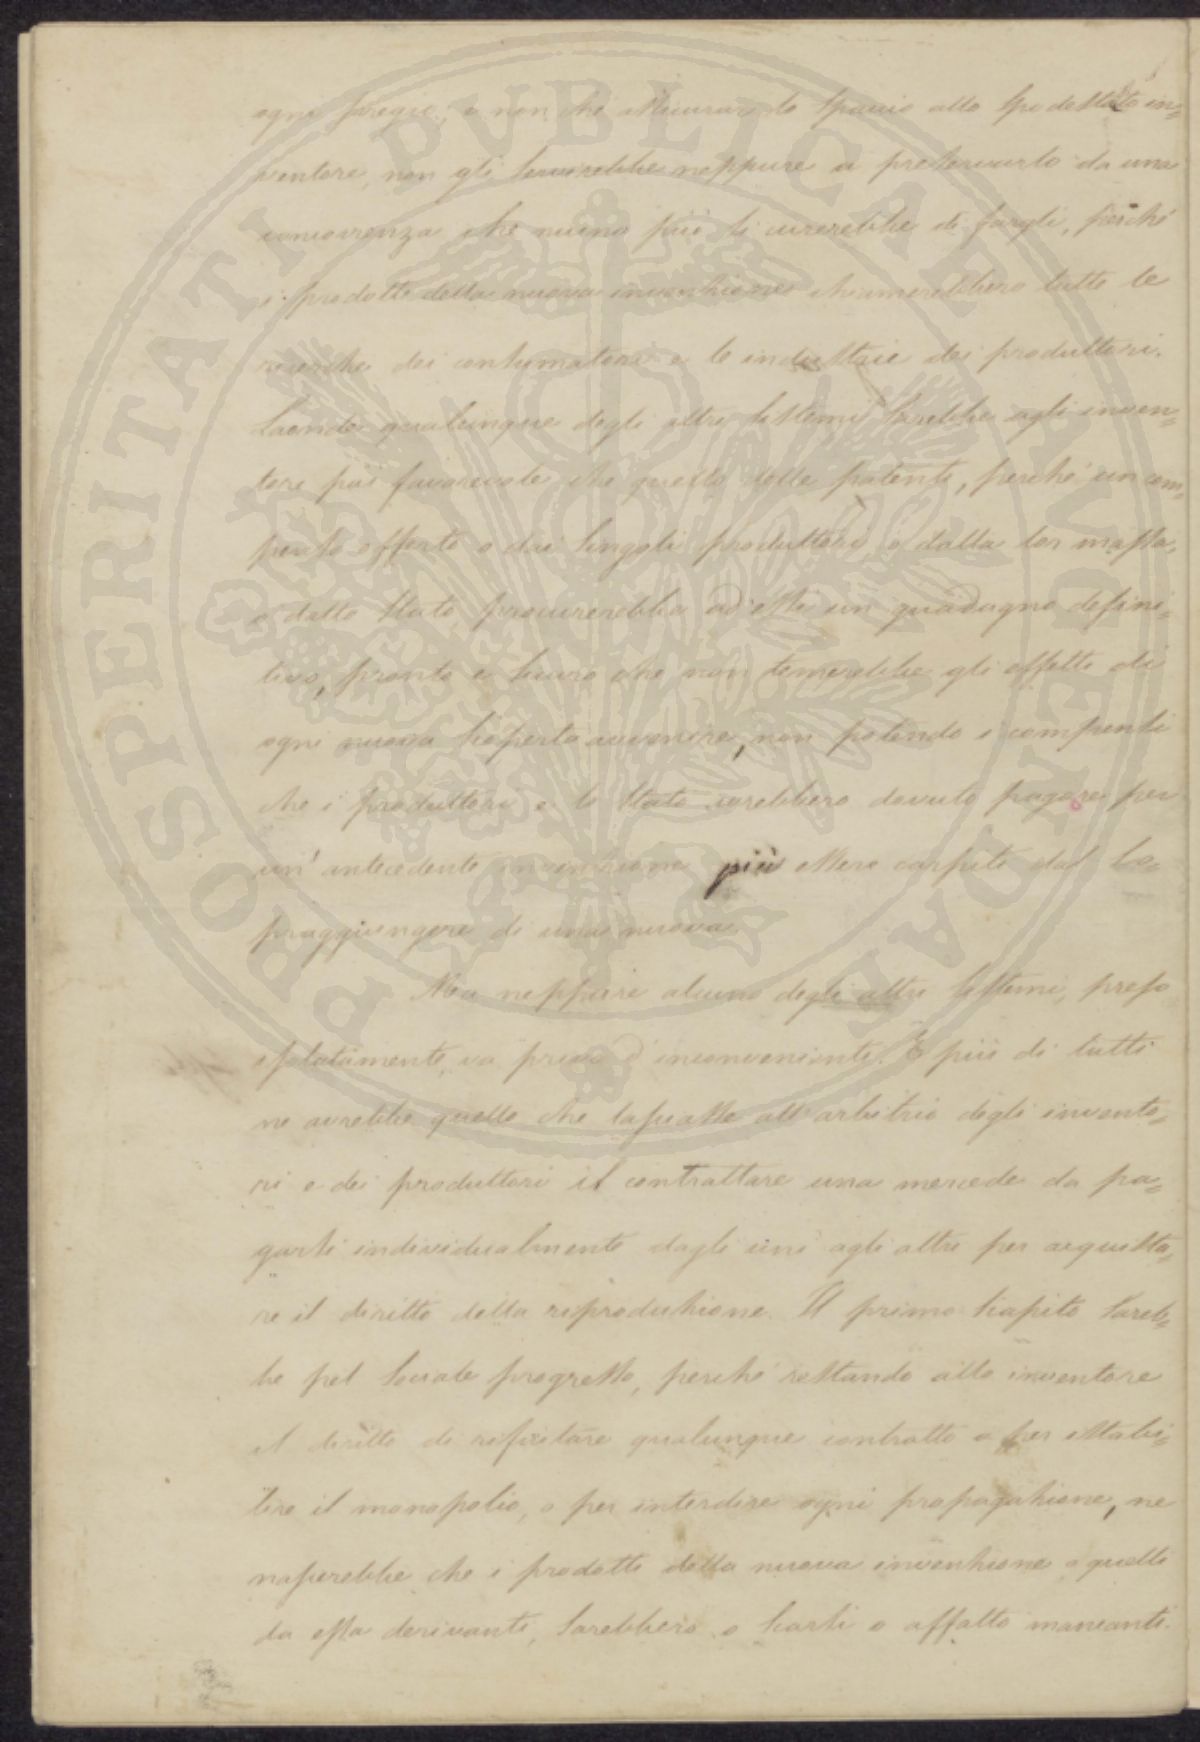 ogni pregio, e non che assicurar lo spaccio allo spodestato in=
ventore, non gli servirebbe neppure a preservarlo da una
concorrenza che niuno più si curerebbe di fargli, perché
i prodotti della nuova invenzione chiamerebbero tutte le
ricerche dei consumatori e le industrie dei produttori.
Laonde qualunque degli altri sistemi sarebbe agli inven=
tori più favorevole che quello delle patenti, perché un com=
penso offerto o dai singoli produttori, o dalla lor massa,
o dallo Stato, procurerebbe ad essi un guadagno defini=
tivo, pronto e sicuro che non temerebbe gli effetti di
ogni nuova scoperta avvenire, non potendo i compensi
che i produttori o lo Stato avrebbero dovuto pagare per
un' antecedente invenzione più essere carpiti dal so=
praggiungere di una nuova.
Ma neppure alcuno degli altri sistemi, preso
isolatamente, va privo d' inconvenienti. E più di tutti
ne avrebbe quello che lasciasse all' arbitrio degli invento=
ri e dei produttori il contrattare una mercede da pa=
garsi individualmente dagli uni agli altri per acquista=
re il diritto della riproduzione. Il primo scapito sareb=
be pel sociale progresso, perché restando allo inventore
il diritto di rifiutare qualunque contratto o per istabi=
lire il monopolio, o per interdire ogni propagazione, ne
nascerebbe che i prodotti della nuova invenzione o quelli
da essa derivanti, sarebbero o scarsi o affatto mancanti.
PROSPERITATI PVBLICAE AVGENDAE